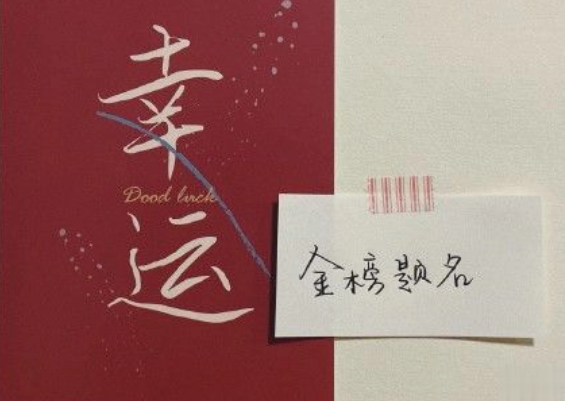 幸
Dood luck
运
金榜题名